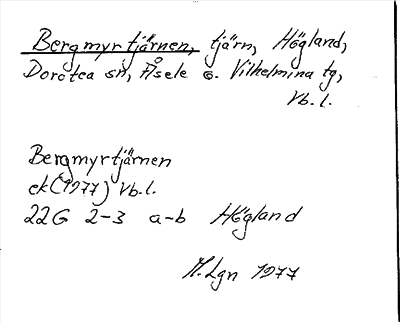 Bergmyrtjärnen, tjärn, Högland,
Dorotea sn, Åsele o. Vilhelmina tg,
Vb. l.
Bergmyrtjärnen
ek (1977) Vb. l.
22G 2-3 a-b Högland
M. Lgn 1977